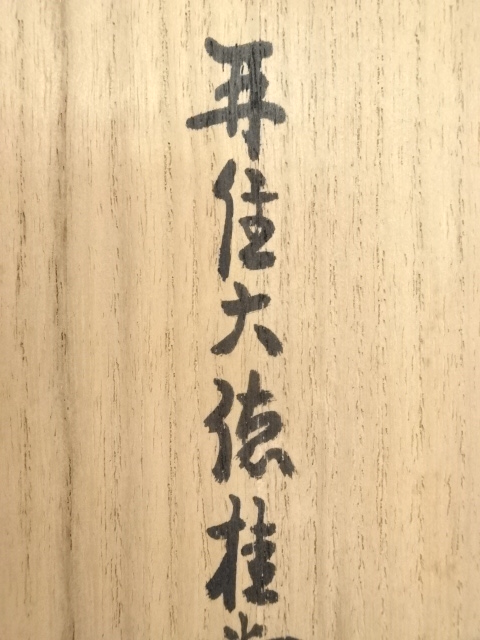 再住大徳桂